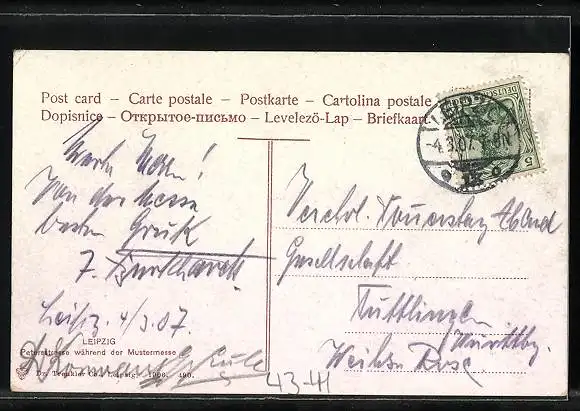 Post card – Carte postale – Postkarte – Cartolina postale
Dopisnice – Открытое-письмо – Levelező-Lap – Briefkaart.
DEUTSCHES
5
-4.3.07.
Von der Messe
besten Gruß
F. Burkhardt
Leipz. 4/3.07.
LEIPZIG
Petersstrasse während der Mustermesse
Dr. Trenkler Co., Leipzig. 1906. 490.
Donnerstag Abend
Gesellschaft
Tuttlingen
Württbg.
43-41